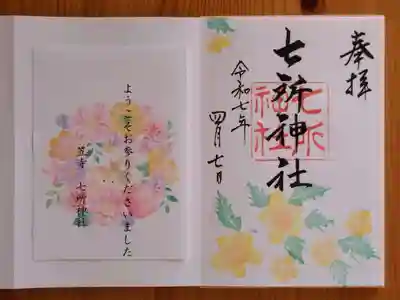 奉拝
七所神社
七所
社
令和七年
四月七日
ようこそお参りくださいました
笠寺 七所神社